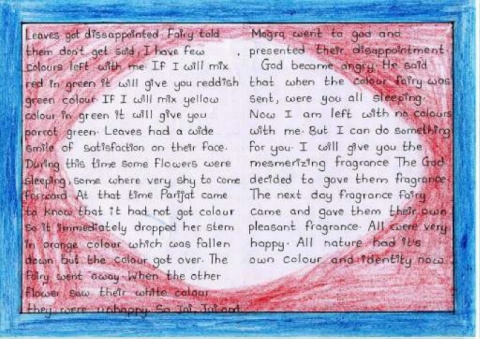 Leaves got dissappointed Fairy told
them don't get said, I have few
colours left with me. If I will mix
red in green it will give you reddish
green colour. If I will mix yellow
colour in green it will give you
parrot green. Leaves had a wide
smile of satisfaction on their face.
During this time some flowers were
sleeping, some where very shy to come
forward. At that time Parijat came
to know that it had not got colour
so it immediately dropped her stem
in orange colour which was fallen
down but the colour got over. The
fairy went away. When the other
flower saw their white colour
they were unhappy. So Jai, Jui and
Mogra went to god and
presented their disappointment.
God became angry. He said
that when the colour fairy was
sent, were you all sleeping.
Now I am left with no colours
with me. But I can do something
for you. I will give you the
mesmerizing fragrance The God
decided to gave them fragrance
The next day fragrance fairy
came and gave them their own
pleasant fragrance. All were very
happy. All nature had it's
own colour and identity now.